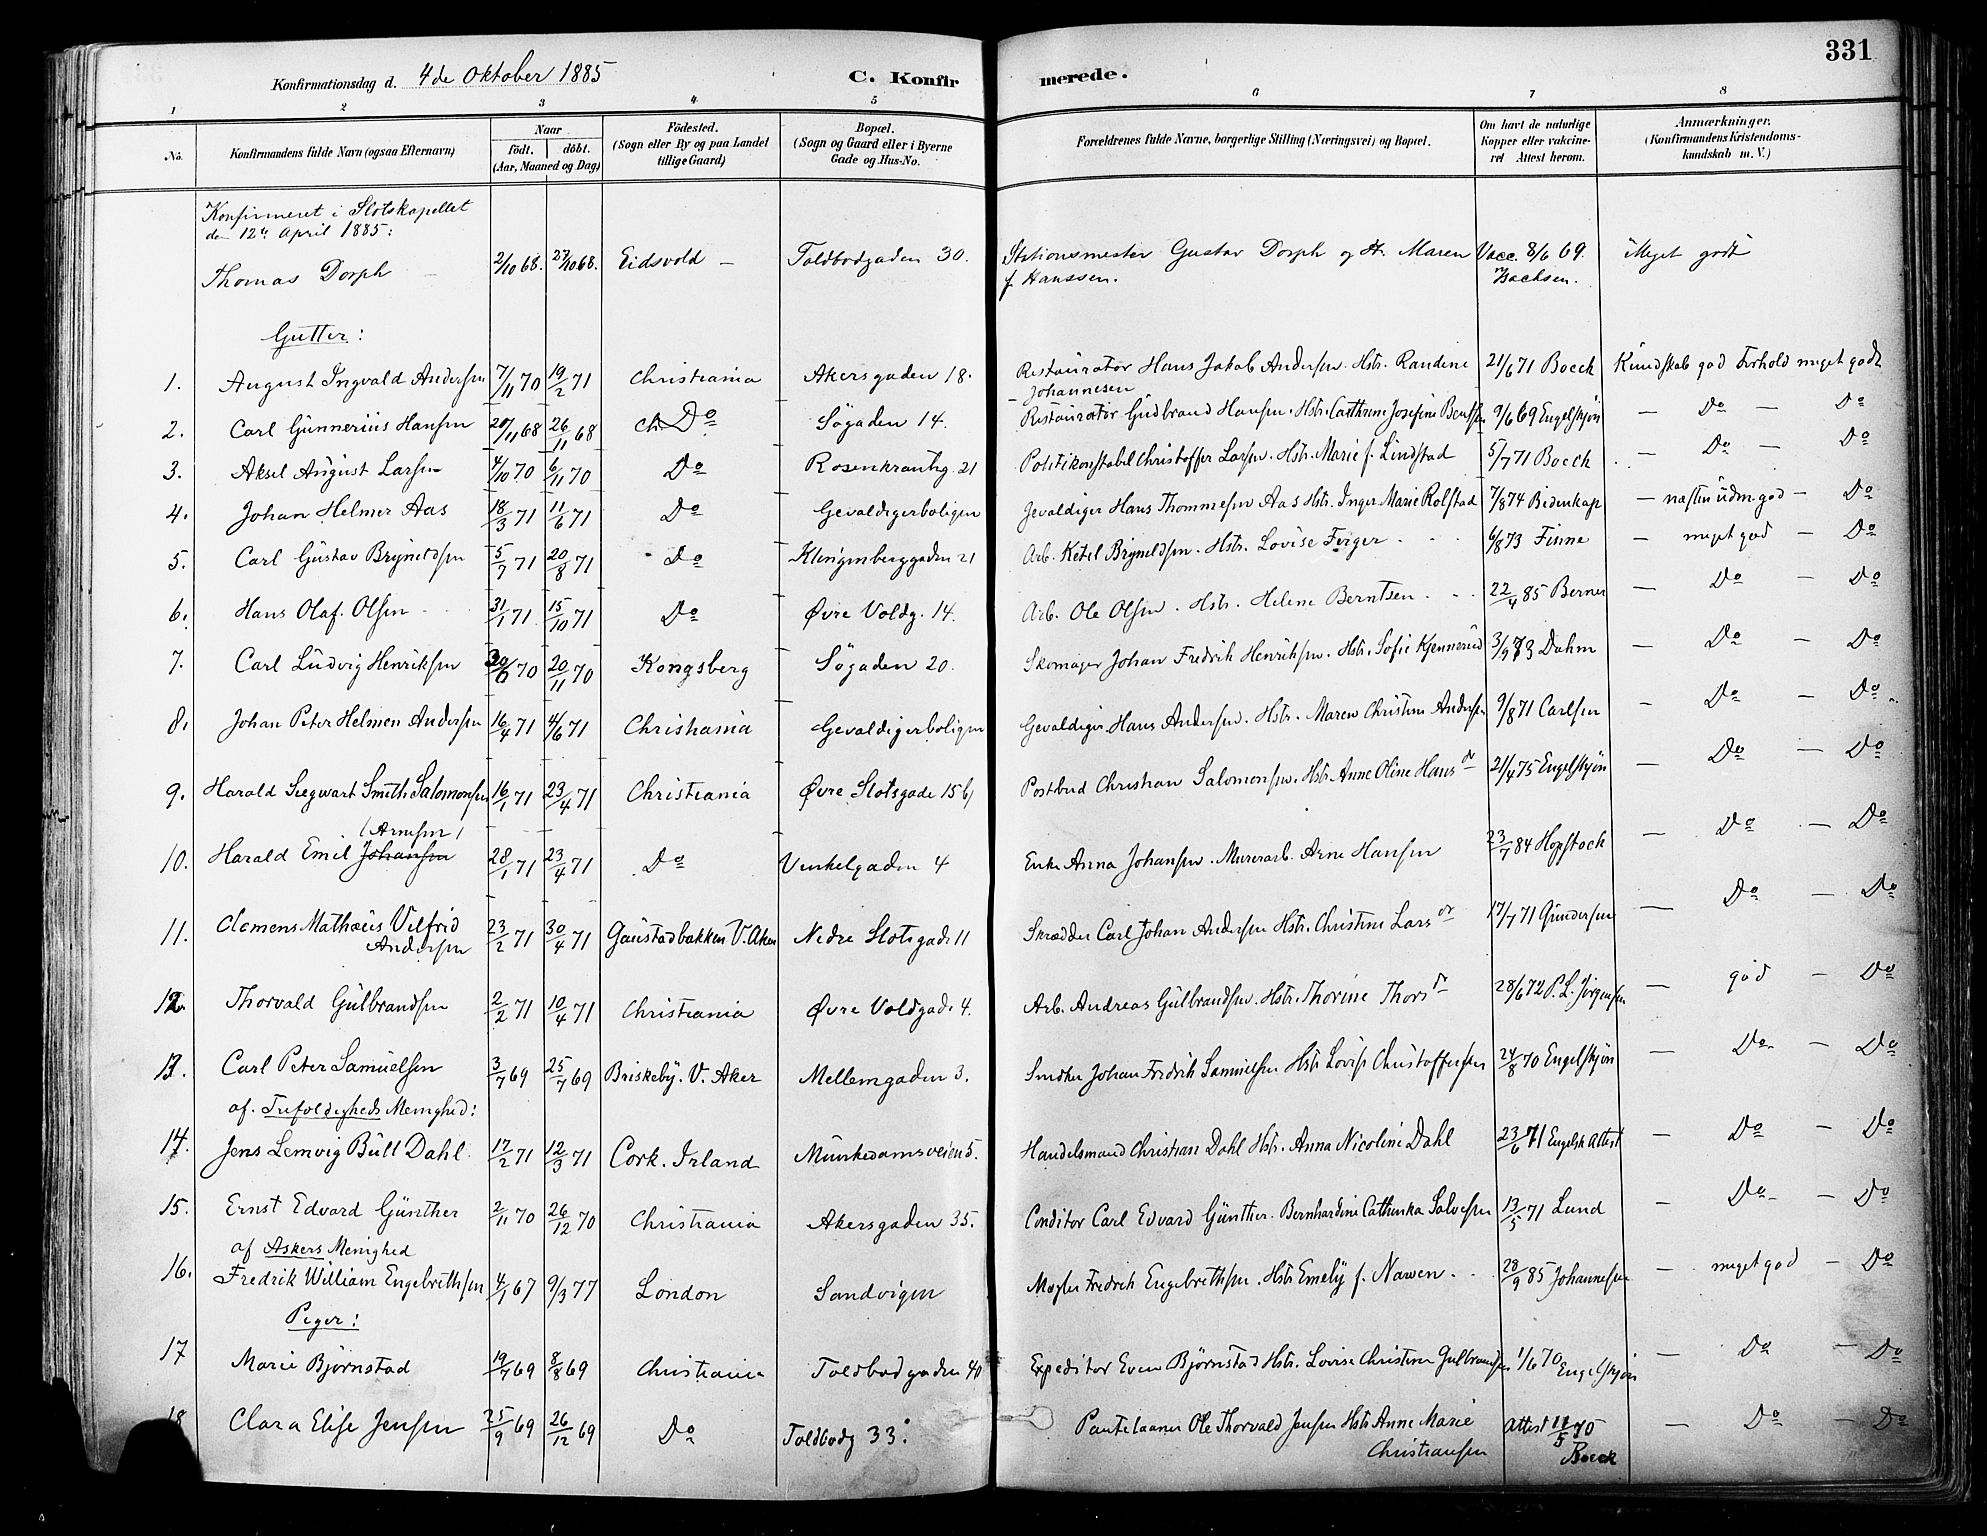 331
Konfirmationsdag d. 4de Oktober 1885 C. Konfirmerede.
1 2 3 4 5 6 7 8
No. Konfirmandens fulde Navn (ogsaa Efternavn) Naar födt. döbt. (Aar, Maaned og Dag) Födested. (Sogn eller By og paa Landet tillige Gaard) Bopæl. (Sogn og Gaard eller i Byerne Gade og Hus-No. Forældrenes fulde Navne, borgerlige Stilling (Næringsvei) og Bopæl. Om havt de naturlige Kopper eller vakcineret Attest herom. Anmærkninger, (Konfirmandens Kristendomskundskab m. V.)
Konfirmeret i Slotskapellet
den 12te April 1885:
Thomas Dorph 2/10 68. 27/10 68. Eidsvold Toldbodgaden 30. Stationsmester Gustav Dorph og H. Maren f. Hanssen. Vacc. 8/6 69. Meget godt
Gutter:
1. August Ingvald Andersen 7/11 70 19/2 71 Christiania Akersgaden 18. Restauratør Hans Jakob Andersen. Hstr. Randine Johannesen 21/6 71 Boeck Kundskab god Forhold meget godt
2. Carl Gunnerius Hansen 20/11 68 26/11 68 Do Søgaden 14. Restauratør Gudbrand Hansen. Hstr. Cathrine Josefine Bentsen 9/6 69 Engelskjøn — Do — Do
3. Aksel August Larsen 4/10 70 6/11 70 Do Rosenkrantzg. 21 Politikonstabel Christoffer Larsen. Hstr. Marie f. Lindstad 5/7 71 Boeck — Do — Do
4. Johan Helmer Aas 18/3 71 11/6 71 Do Gevaldigerboligen Gevaldiger Hans Thommesen Aas Hstr. Inger Marie Rolstad 7/8 74 Bidenkap — næsten udm. god — Do
5. Carl Gustav Brynildsen 5/7 71 20/8 71 Do Klingenberggaden 21 Arb. Ketil Brynildsen. Hstr. Lovise 6/8 73 Finne — meget god — Do
6. Hans Olaf Olsen 31/1 71 15/10 71 Do Øvre Voldg. 14. Arb. Ole Olsen. Hstr. Helene Berntsen 22/4 85 Berner — Do — Do
7. Carl Ludvig Henriksen 30/6 70 20/11 70 Kongsberg Søgaden 20. Skomager Johan Fredrik Henriksen. Hstr. Sofie Kjennerud 3/9 73 Dahm — Do — Do
8. Johan Peter Helmen Andersen 16/4 71 4/6 71 Christiania Gevaldigerboligen Gevaldiger Hans Andersen. Hstr. Maren Christine Andersen 9/8 71 Carlsen — Do — Do
9. Harald Siegwart Smith Salomonsen 16/1 71 23/4 71 Christiania Øvre Slotsgade 15 b/ Postbud Christian Salomonsen. Hstr. Anne Oline Hansdr 21/4 75 Engelskjøn — Do — Do
/Arnesen/
10. Harald Emil Johansen 28/1 71 23/4 71 Do Vinkelgaden 4 Enke Anna Johansen. Murerarb. Arne Hansen 23/7 84 Hopstock — Do — Do
11. Clemens Mathæus Vilfrid Andersen 23/2 71 30/4 71 Gaustadbakken V. Aker Nedre Slotsgade 11 Skrædder Carl Johan Andersen Hstr. Christine Larsdr 17/7 71 Gundersen — Do — Do
12. Thorvald Gulbrandsen 2/2 71 10/4 71 Christiania Øvre Voldgade 4. Arb. Andreas Gulbrandsen. Hstr. Thorine Thorsdr 28/6 72 P. L. Jørgensen — god — Do
13. Carl Peter Samuelsen 3/7 69 25/7 69 Briskeby. V. Aker Mellemgaden 3. Snedker Johan Fredrik Samuelsen Hstr. Lovise Christoffersen 24/8 70 Engelskjøn — Do — Do
af. Trefoldigheds Menighed:
14. Jens Lemvig Bull Dahl 17/2 71 12/3 71 Cork. Irland Munkedamsveien 5. Handelsmand Christian Dahl Hstr. Anna Nicoline Dahl 23/6 71 Engelsk Attest — Do — Do
15. Ernst Edvard Günther 2/11 70 26/12 70 Christiania Akersgaden 35. Conditor Carl Edvard Günther. Bernhardine Cathinka Salvesen 13/5 71 Lund — Do — Do
af Askers Menighed
16. Fredrik William Engebrethsen 4/1 67 9/3 77 London Sandvigen Mægler Fredrik Engebrethsen. Hstr Emely f. Nawen. 28/9 85 Johannesen — meget god — Do
Piger:
17 Marie Bjørnstad 19/7 69 8/8 69 Christiania Toldbodgaden 40 Expeditør Even Bjørnstad Hstr. Lovise Christine Gulbrandsen 1/6 70 Engelskjøn — Do — Do
18 Clara Elise Jensen 25/9 69 26/12 69 Do Toldbodg 33. Pantelaaner Ole Thorvald Jensen Hstr Anne Marie Christiansen Attest 11/5 70 Boeck — Do — Do